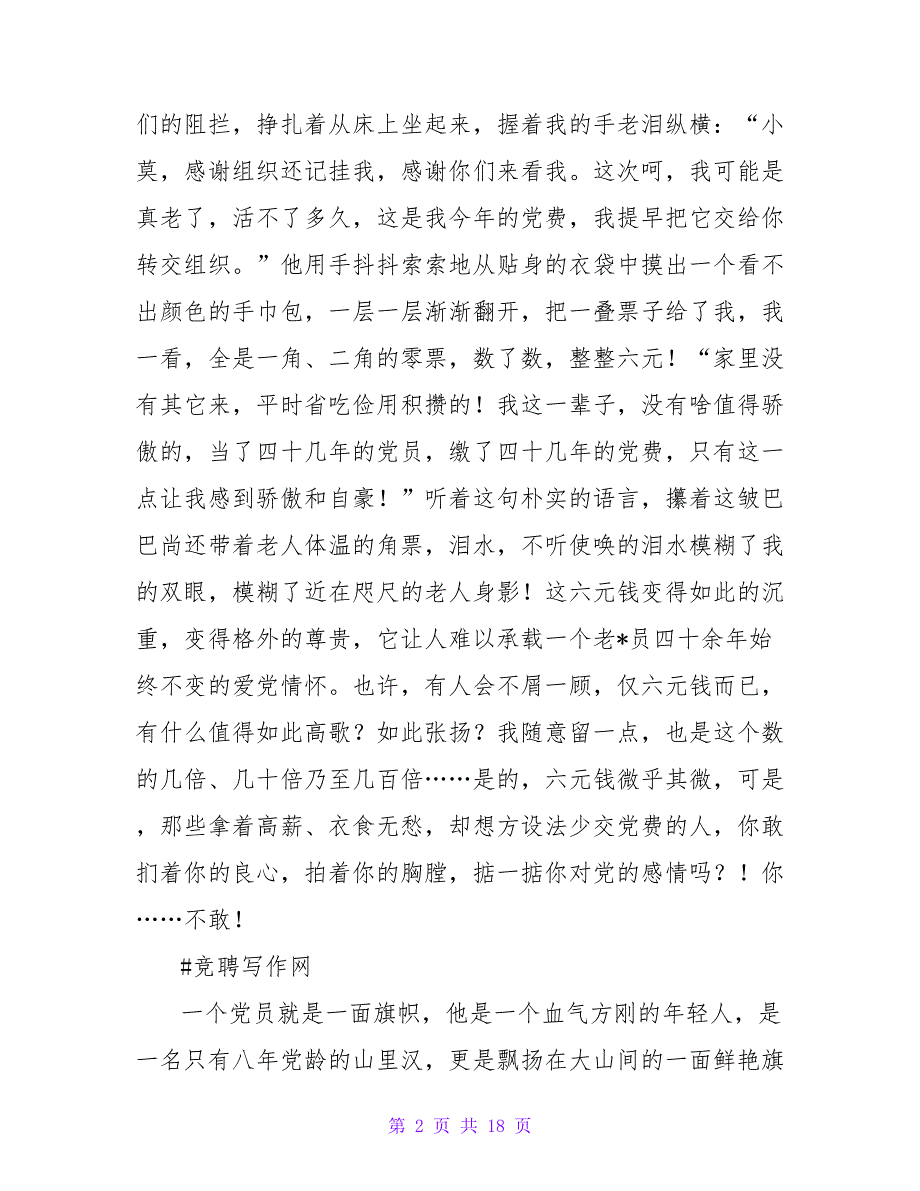 们的阻拦，挣扎着从床上坐起来，握着我的手老泪纵横：“小
莫，感谢组织还记挂我，感谢你们来看我。这次呵，我可能是
真老了，活不了多久，这是我今年的党费，我提早把它交给你
转交组织。”他用手抖抖索索地从贴身的衣袋中摸出一个看不
出颜色的手巾包，一层一层渐渐翻开，把一叠票子给了我，我
一看，全是一角、二角的零票，数了数，整整六元！“家里没
有其它来，平时省吃俭用积攒的！我这一辈子，没有啥值得骄
傲的，当了四十几年的党员，缴了四十几年的党费，只有这一
点让我感到骄傲和自豪！”听着这句朴实的语言，攥着这皱巴
巴尚还带着老人体温的角票，泪水，不听使唤的泪水模糊了我
的双眼，模糊了近在咫尺的老人身影！这六元钱变得如此的沉
重，变得格外的尊贵，它让人难以承载一个老*员四十余年始
终不变的爱党情怀。也许，有人会不屑一顾，仅六元钱而已，
有什么值得如此高歌？如此张扬？我随意留一点，也是这个数
的几倍、几十倍乃至几百倍……是的，六元钱微乎其微，可是
，那些拿着高薪、衣食无愁，却想方设法少交党费的人，你敢
扪着你的良心，拍着你的胸膛，掂一掂你对党的感情吗？！你
……不敢！
#竞聘写作网
一个党员就是一面旗帜，他是一个血气方刚的年轻人，是
一名只有八年党龄的山里汉，更是飘扬在大山间的一面鲜艳旗
第 2 页 共 18 页